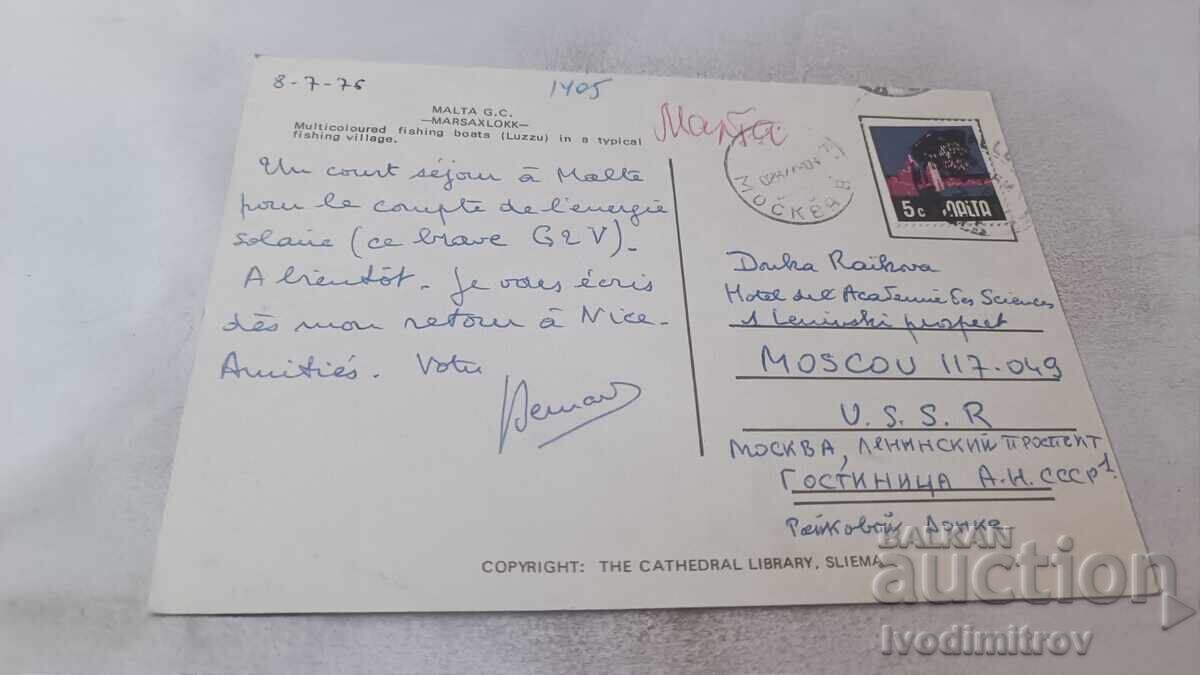 8-7-76
1405
MALTA G.C.
—MARSAXLOKK—
Multicoloured fishing boats (Luzzu) in a typical
fishing village.
Малта
Un court séjour à Malte
pour le compte de l'énergie
solaire (ce brave G2V).
A bientôt. Je vous écris
dès mon retour à Nice.
Amitiés. Votre
Bernard
МОСКВА
5c MALTA
Donka Raikova
Hotel de l'Academie des Sciences
1 Leninski prospect
MOSCOU 117.049
U.S.S.R
МОСКВА, ЛЕНИНСКИЙ ПРОСПЕКТ 1
ГОСТИНИЦА А.Н. СССР
Райковой Донке
COPYRIGHT: THE CATHEDRAL LIBRARY, SLIEMA
BALKAN
auction
Ivodimitrov